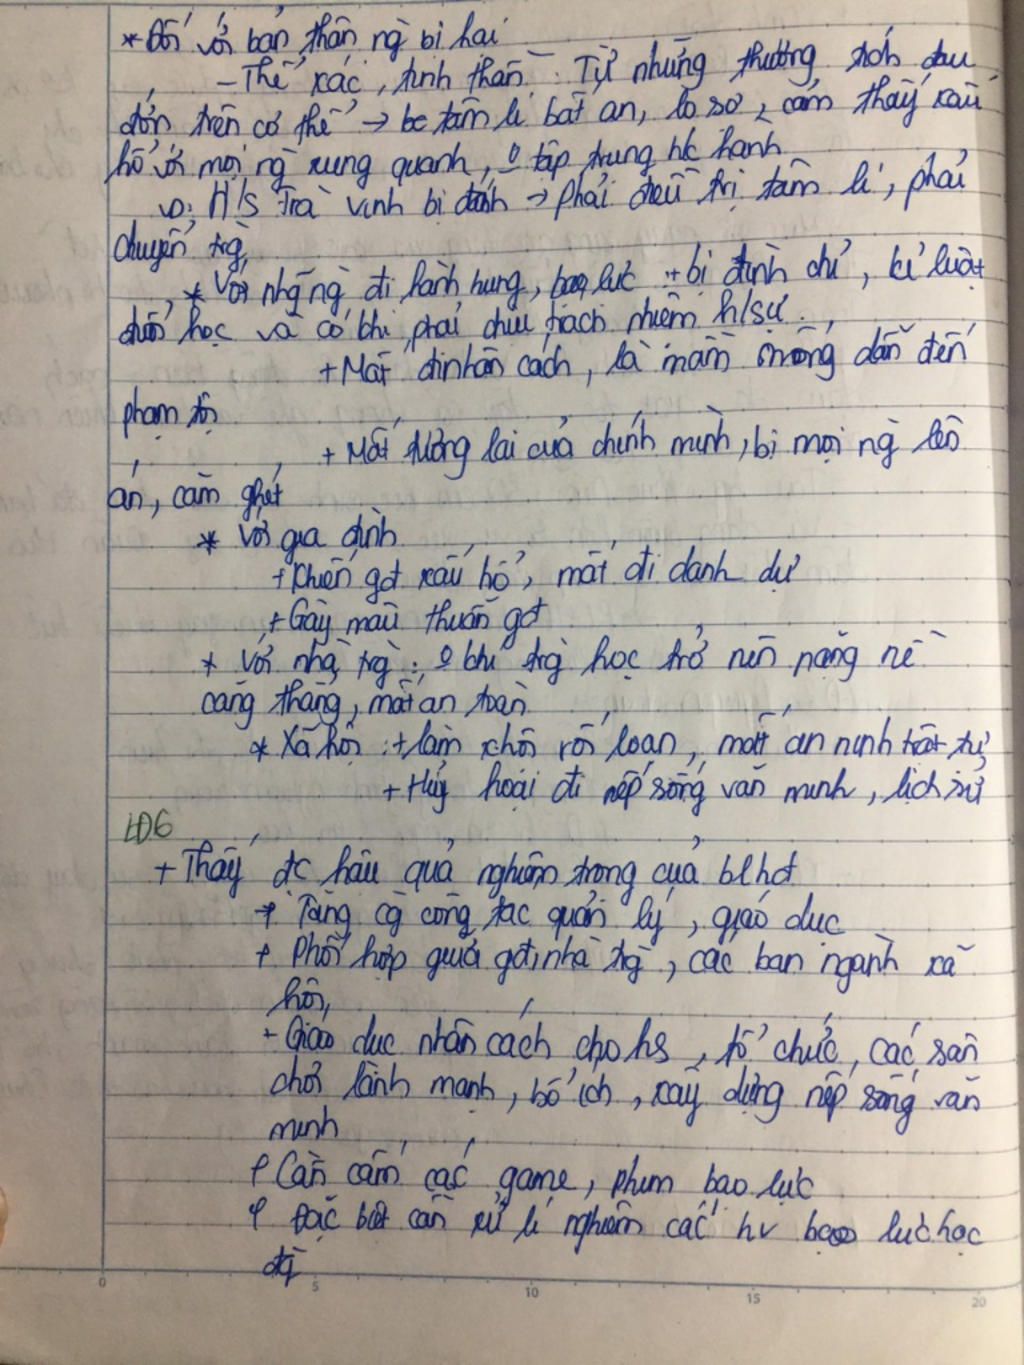 * Đối với bản thân ng bị hại
- Thể xác, tinh thần : Từ những thương tích đau
đớn trên cơ thể → bc tâm lí bất an, lo sợ, cảm thấy xấu
hổ với mọi ng xung quanh, o tập trung hk hành
VD: H/S Trà Vinh bị đánh → phải điều trị tâm lí, phải
chuyển trg
* Với những ng đi hành hung, bạo lực : + bị đình chỉ, kỉ luật
đuổi học và có khi phải chịu trách nhiệm h/sự.
+ Mất đi nhân cách, là mầm mống dẫn đến
phạm tội
+ Mất tương lai của chính mình, bị mọi ng lên
án, căm ghét
* Với gia đình
+ khiến gđ xấu hổ, mất đi danh dự
+ Gây mâu thuẫn gđ
* Với nhà trg : o khí trg học trở nên nặng nề
căng thẳng, mất an toàn
* Xã hội : + làm xh rối loạn, mất an ninh trật tự
+ Hủy hoại đi nếp sống văn minh, lịch sử
LĐ6
+ Thấy đc hậu quả nghiêm trọng của blhđ
+ Tăng cg công tác quản lý, giáo dục
+ Phối hợp giữa gđ, nhà trg, các ban ngành xã
hội,
+ Giáo dục nhân cách cho hs, tổ chức, các sân
chơi lành mạnh, bổ ích, xây dựng nếp sống văn
minh
+ Cần cấm các game, phim bạo lực
+ Đặc biệt cần xử lí nghiêm các hv bạo lực học
đg